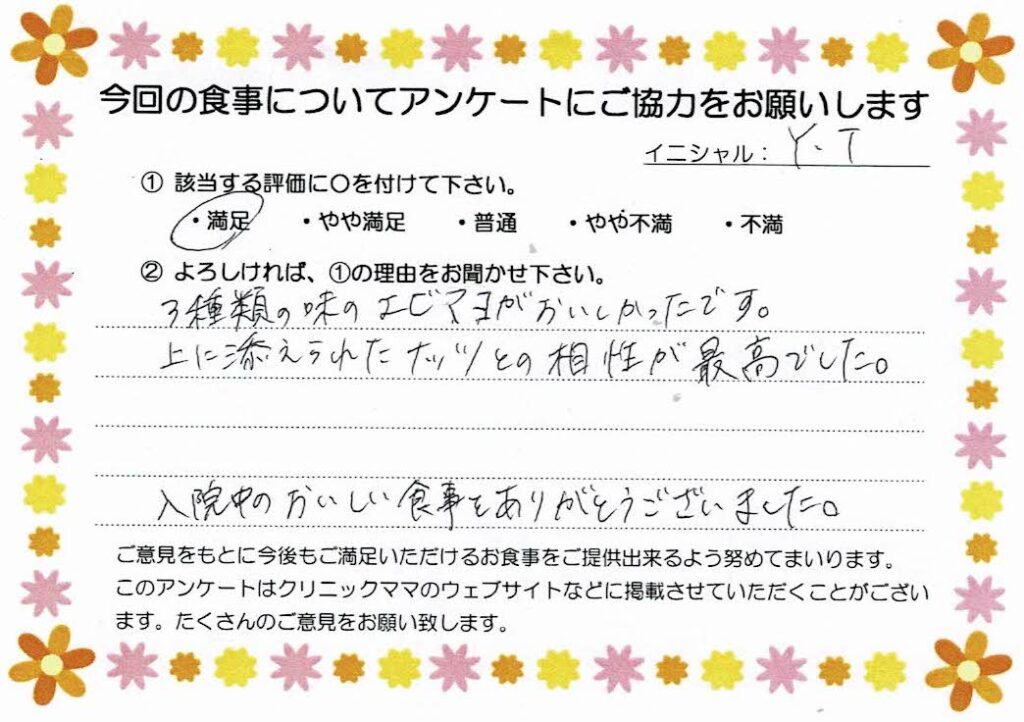 今回の食事についてアンケートにご協力をお願いします
イニシャル： Y.T
① 該当する評価に〇を付けて下さい。
・満足 ・やや満足 ・普通 ・やや不満 ・不満
② よろしければ、①の理由をお聞かせ下さい。
3種類の味のエビマヨがおいしかったです。
上に添えられたナッツとの相性が最高でした。
入院中のおいしい食事をありがとうございました。
ご意見をもとに今後もご満足いただけるお食事をご提供出来るよう努めてまいります。
このアンケートはクリニックママのウェブサイトなどに掲載させていただくことがござい
ます。たくさんのご意見をお願い致します。